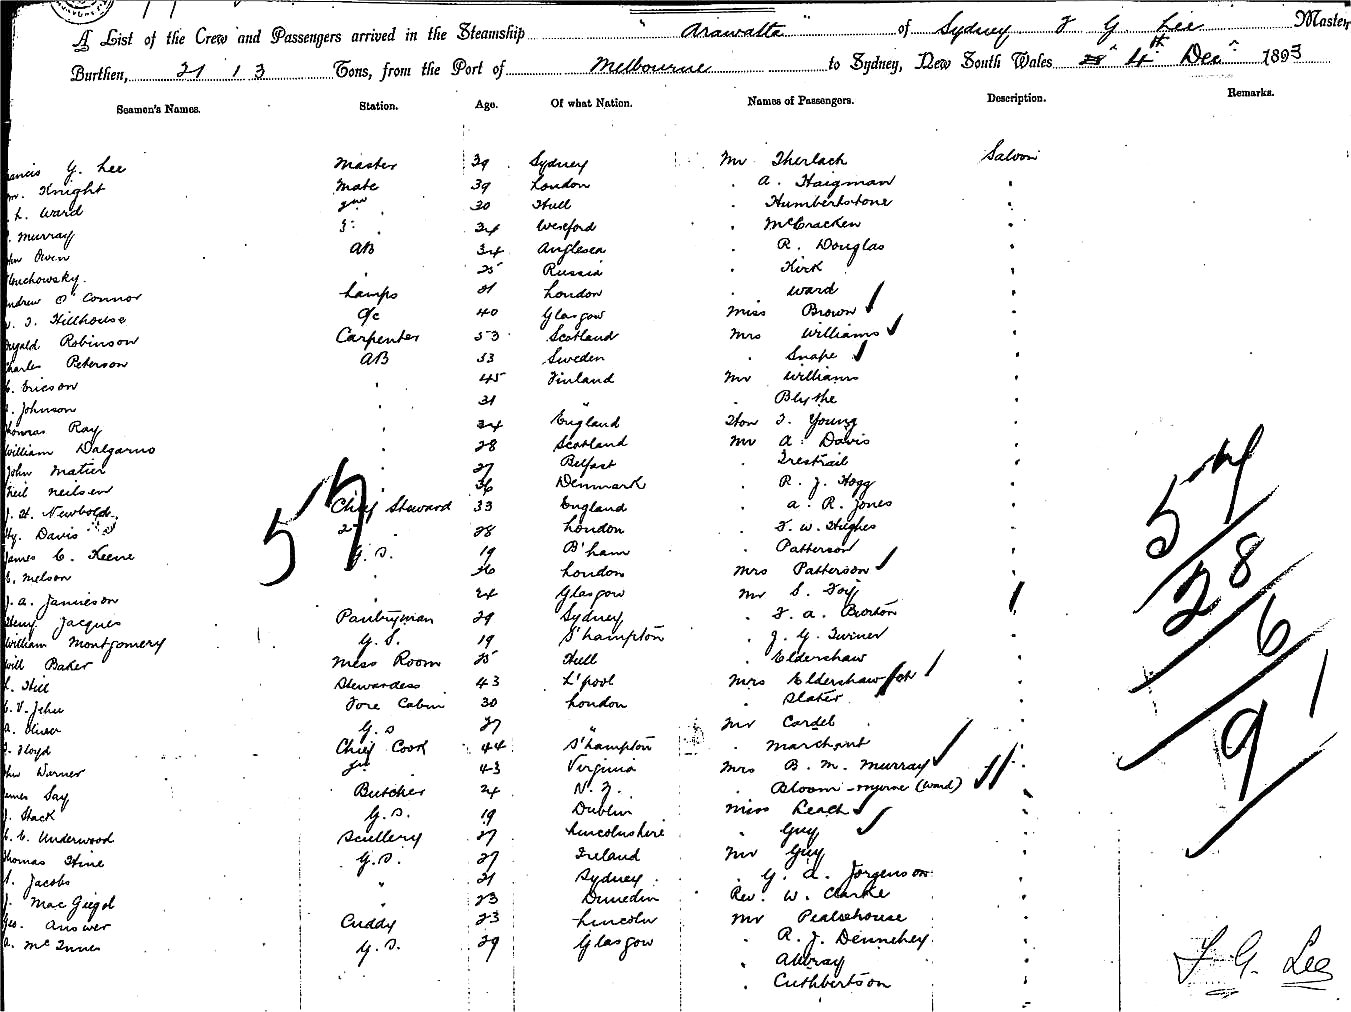 A List of the Crew and Passengers arrived in the Steamship "Arawatta" of Sydney F G Lee Master,
Burthen, 2113 Tons, from the Port of Melbourne to Sydney, New South Wales 4th Decr 1893
Seamen's Names. Station. Age. Of what Nation. Names of Passengers. Description. Remarks.
ancis G. Lee Master 39 Sydney Mr Therlach Saloon
Knight Mate 39 London " A. Haigman "
L. Ward 2nd 30 Hull " Humberstone "
Murray 3rd 34 Wexford " McCracken "
Owen AB 34 Anglesea " R. Douglas "
uchowsky. " 25 Russia " Kirk "
ndrew O'Connor Lamps 21 London " Ward "
J. Hillhouse 40 Glasgow Miss Brown "
ugald Robinson Carpenter 53 Scotland Mrs Williams "
harles Peterson AB 53 Sweden " Snape "
Ericson " 45 Finland Mr Williams "
Johnson " 31 " " Blythe "
homas Ray " 34 England Hon J. Young "
William Dalgarno " 28 Scotland Mr A. Davis "
John Matier " 27 Belfast " Trestrail "
Neil Neilsen " 36 Denmark " R. J. Hogg "
J. H. Newbold. Chief Steward 33 England " A. R. Jones "
Hy. Davis 2nd " 28 London " F. W. Hughes "
James C. Keene G.S. 19 B'ham " Patterson "
Nelson " 26 London Mrs Patterson "
J. A. Jamieson " 24 Glasgow Mr S. Foy
Henry Jacques Pantryman 29 Sydney " F. A. Burton "
William Montgomery G.S. 19 S'hampton " J. G. Turner "
Will Baker Mess Room 25 Hull " Eldershaw "
Hill Stewardess 43 L'pool Mrs Eldershaw "
V. Jehu Fore Cabin 30 London " Slater "
Oliver G.S 27 " Mr Cardel "
Floyd Chief Cook 44 S'hampton " Marchant "
Warner 2nd 43 Virginia Mrs B. M. Murray "
James Say Butcher 24 N.Z. " Bloom (Ward) "
J. Stack G.S. 19 Dublin Miss Leach "
C. Underwood Scullery 27 Lincolnshire " Guy "
Thomas Hine G.S. 27 Ireland Mr Guy "
Jacobs " 21 Sydney " G. A. Jorgenson "
J. MacGiegol " 23 Dunedin Rev. W. Clarke "
Geo. Answer Cuddy 23 Lincoln Mr Pealsehouse "
A. McInnes G.S. 29 Glasgow " R. J. Dennehey. "
" "
" Cuthbertson
57
57
28
6
91
F G. Lee